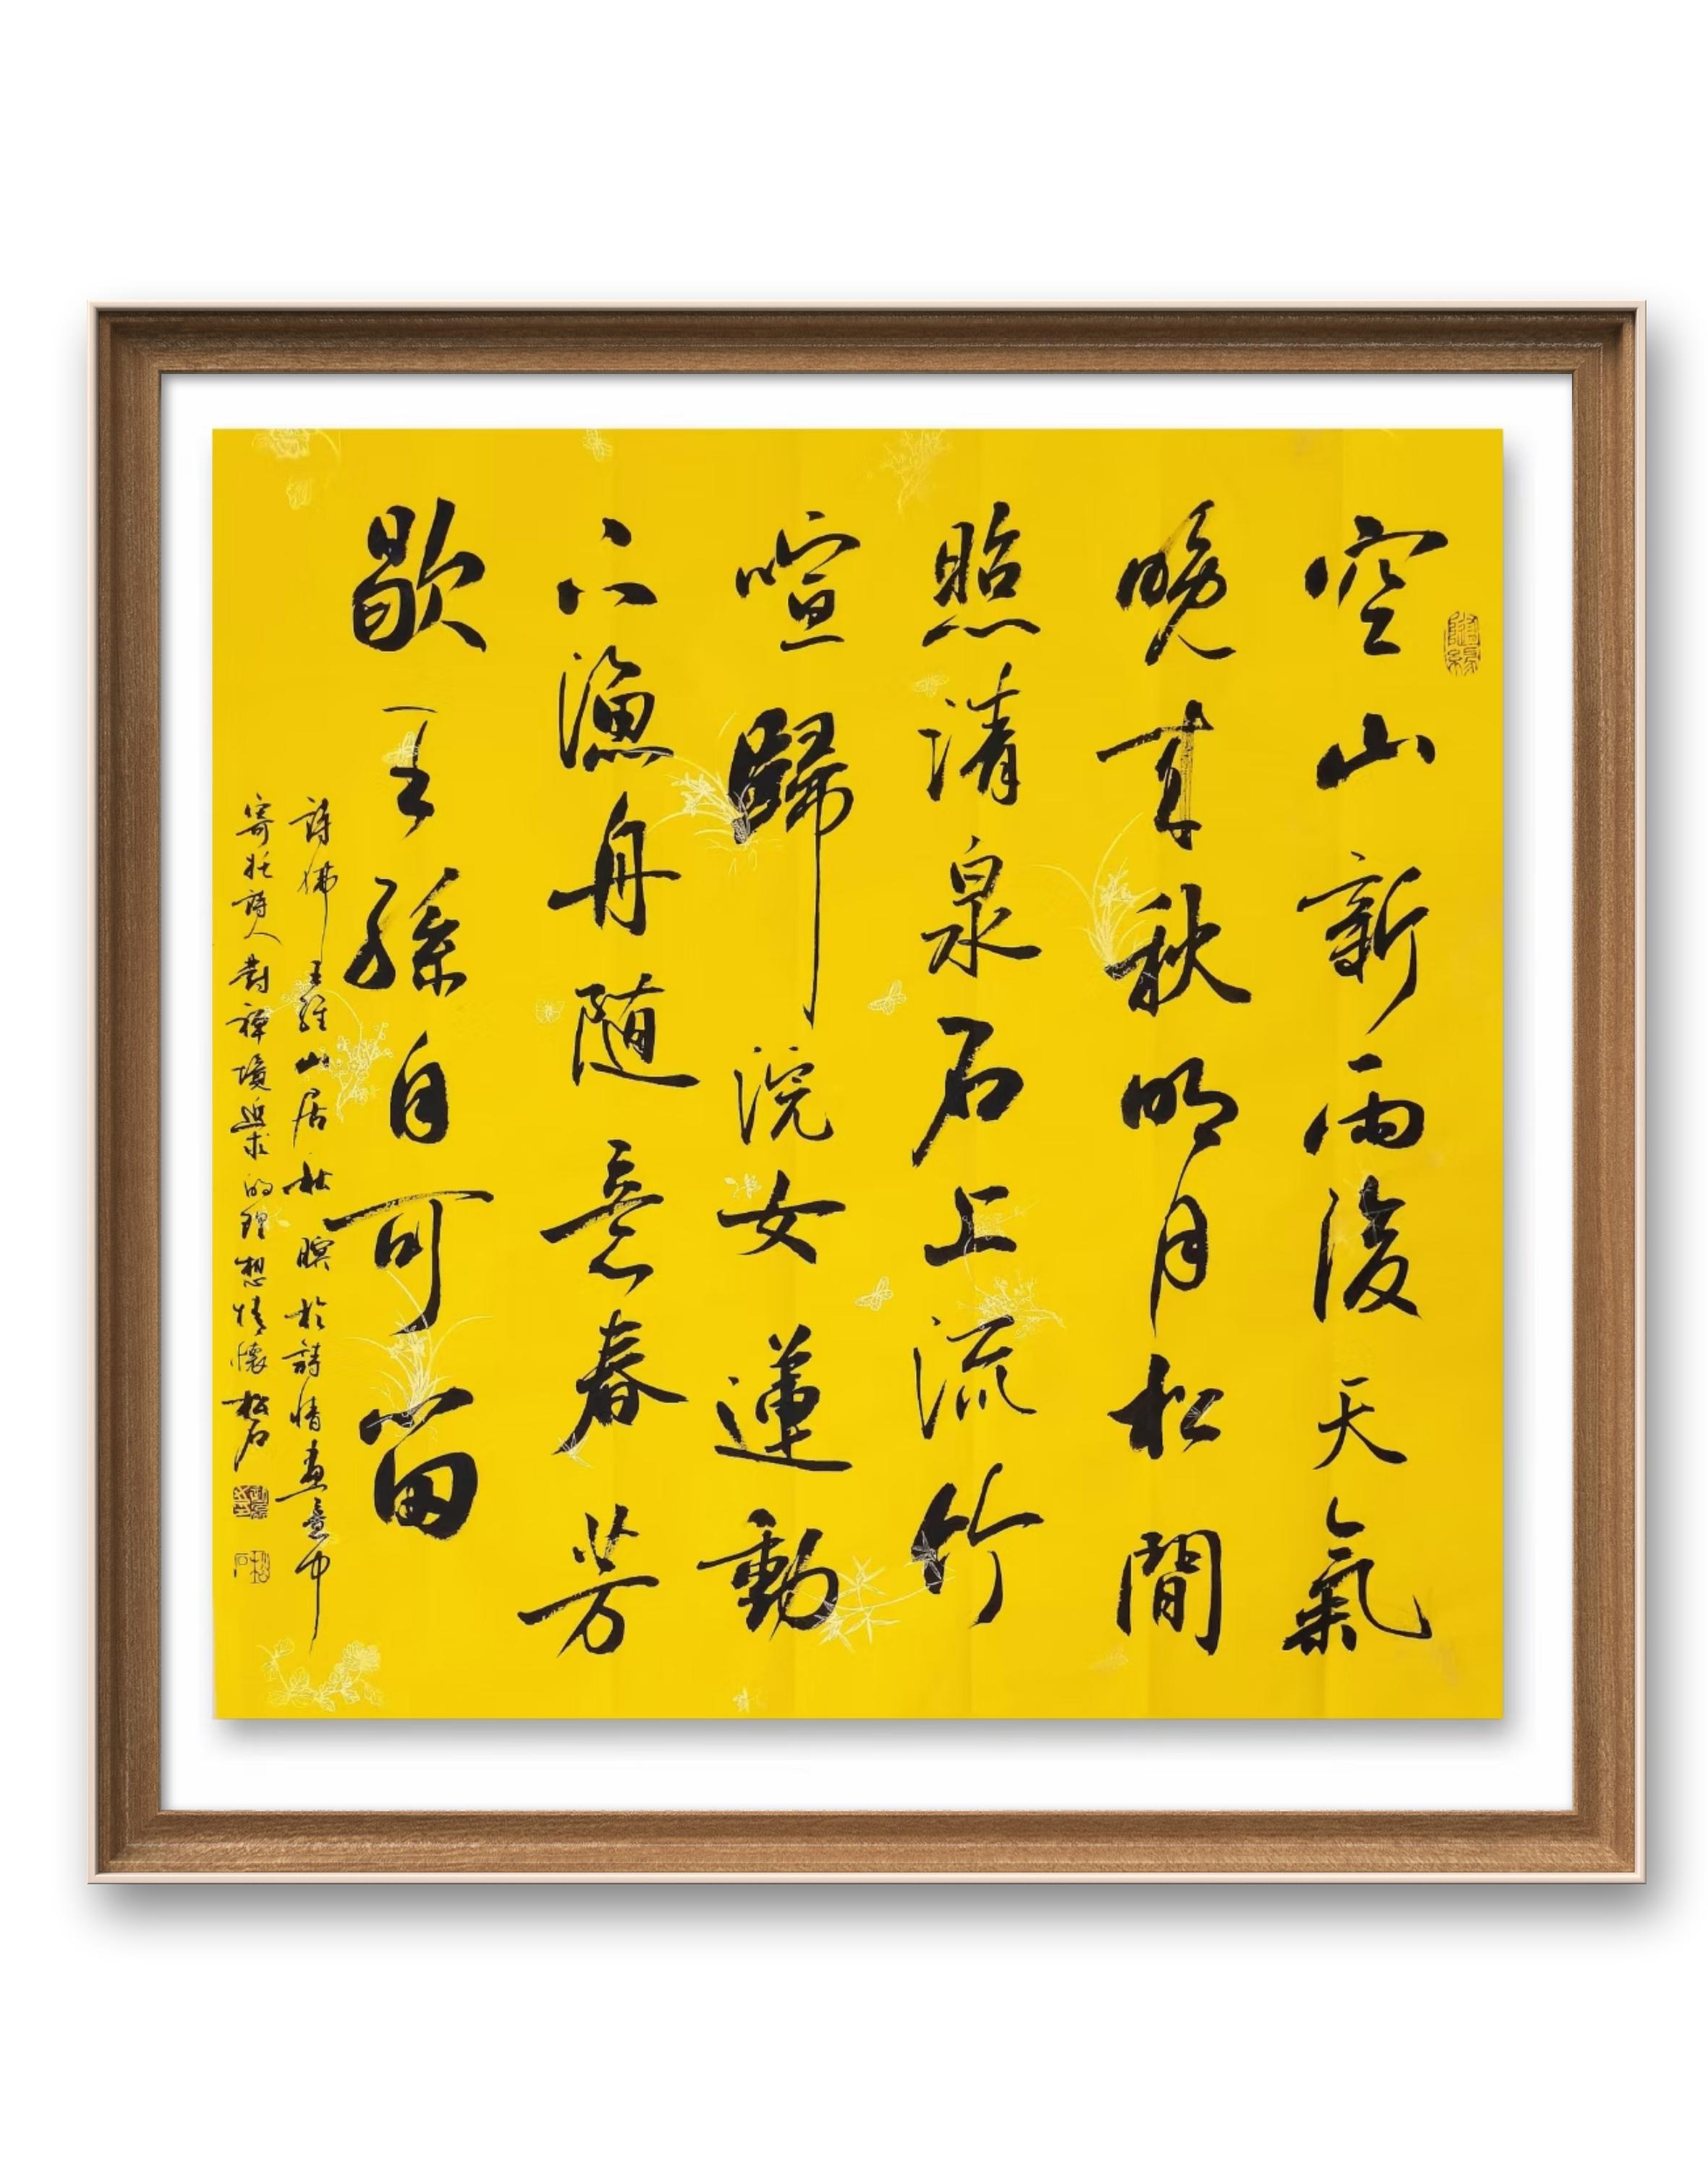 空山新雨後天氣
晚来秋明月松間
照清泉石上流竹
喧歸浣女蓮動
下漁舟随意春芳
歇王孫自可留
詩佛王維山居秋暝於詩情畫意中
寄托詩人對禪境追求的理想情懷 松石